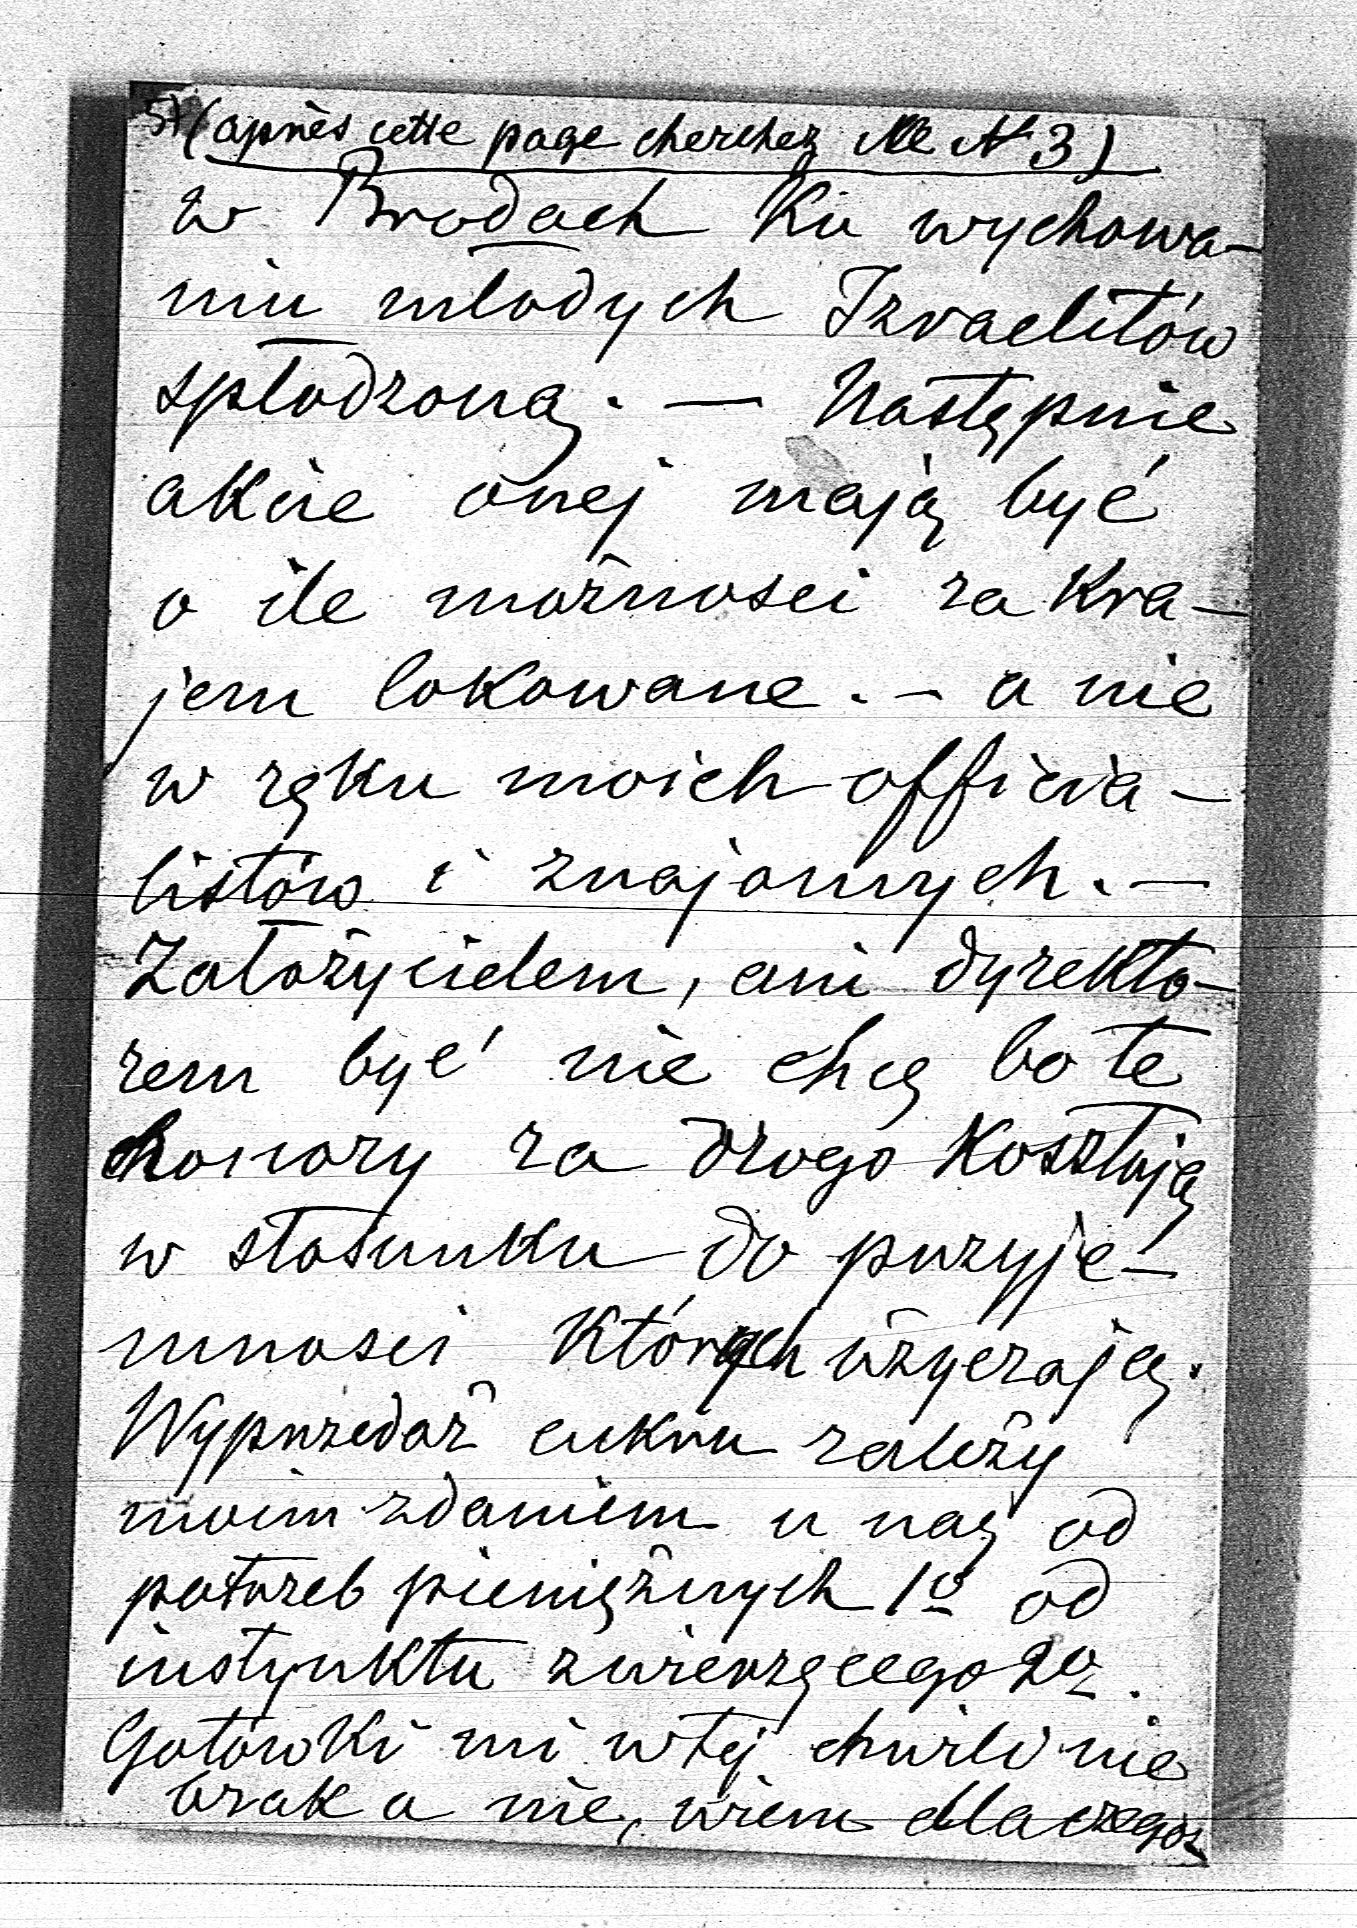 5) (après cette page cherchez le N 3)
w Brodach ku wychowa-
niu młodych Izraelitów
spłodzoną. — Następnie
akcie onej mają być
o ile możnosci za kra-
jem lokowane. – a nie
w ręku moich officia-
listów i znajomych. —
Założycielem, ani dyrekto-
rem być nie chcę bo te
honory za drogo kosztują
w stosunku do przyje-
mnosci których użyczają.
Wyprzedaż cukru zależy
moim zdaniem u nas od
potrzeb pieniężnych 1o od
instynktu zwierzęcego 2o.
Gotówki mi w tej chwili nie
brak a nie, wiem dla czegoż